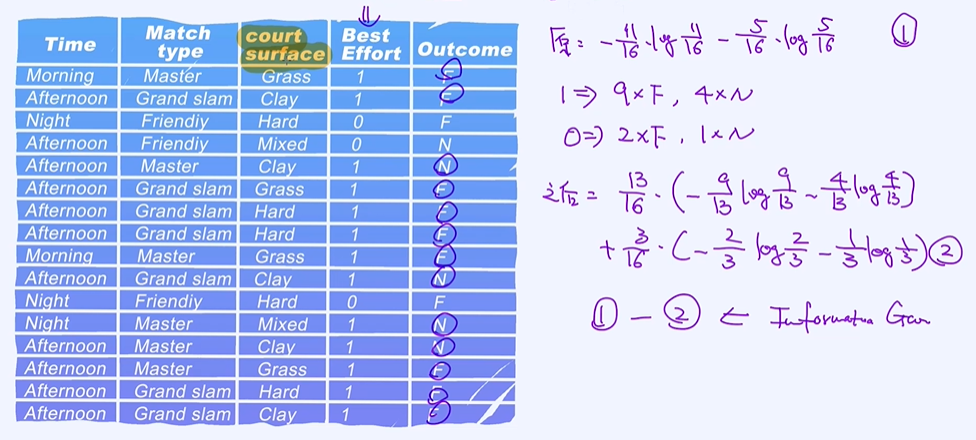 Time Match type court surface Best Effort Outcome
Morning Master Grass 1 F
Afternoon Grand slam Clay 1 F
Night Friendiy Hard 0 F
Afternoon Friendiy Mixed 0 N
Afternoon Master Clay 1 N
Afternoon Grand slam Grass 1 F
Afternoon Grand slam Hard 1 F
Afternoon Grand slam Hard 1 F
Morning Master Grass 1 F
Afternoon Grand slam Clay 1 N
Night Friendiy Hard 0 F
Night Master Mixed 1 N
Afternoon Master Clay 1 N
Afternoon Master Grass 1 F
Afternoon Grand slam Hard 1 F
Afternoon Grand slam Clay 1 F
= - 11/16 · log 11/16 - 5/16 · log 5/16 ①
1 => 9 × F, 4 × N
0 => 2 × F, 1 × N
= 13/16 · (- 9/13 log 9/13 - 4/13 log 4/13)
+ 3/16 · (- 2/3 log 2/3 - 1/3 log 1/3) ②
① - ② ← Information Gain